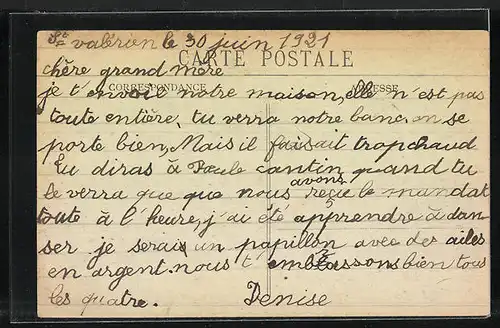 St valérien le 30 juin 1921
CARTE POSTALE
chère grand mère
CORRESPONDANCE ADRESSE
je t'envoil notre maison, elle n'est pas
toute entière, tu verra notre banc, on se
porte bien, Mais il faisait trop chaud
Tu diras à Paule cantin quand tu
le verra que que nous avons reçue le mandat
toute à l'heure, j'ai été apprendre à dan
ser je serais un papillon avec des ailes
en argent. nous t'embrassons bien tous
les quatre. Denise